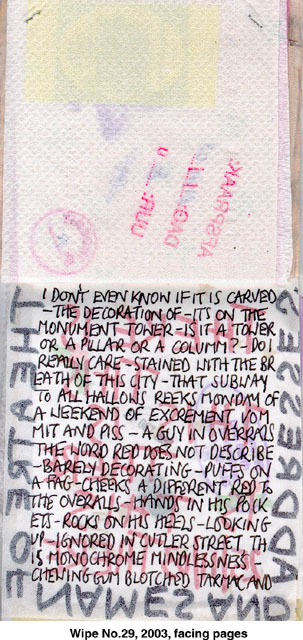 UUR:
DAG:
AFSPRAAK:
I DON'T EVEN KNOW IF IT IS CARVED
-THE DECORATION OF-ITS ON THE
MONUMENT TOWER-IS IT A TOWER
OR A PILLAR OR A COLUMN?-DO I
REALLY CARE-STAINED WITH THE BR
EATH OF THIS CITY-THAT SUBWAY
TO ALL HALLOWS REEKS MONDAY OF
A WEEKEND OF EXCREMENT VOM
MIT AND PISS-A GUY IN OVERRALS
THE WORD RED DOES NOT DESCRIBE
-BARELY DECORATING-PUFFS ON
A FAG-CHEEKS A DIFFERENT RED TO
THE OVERALLS-HANDS IN HIS POCK
ETS-ROCKS ON HIS HEELS-LOOKING
UP-IGNORED IN CUTLER STREET TH
IS MONOCHROME MINDLESSNESS-
CHEWING GUM BLOTCHED TARMAC AND
THEATRE
OF
NAMES AND
ADDRESSES
Wipe No.29, 2003, facing pages